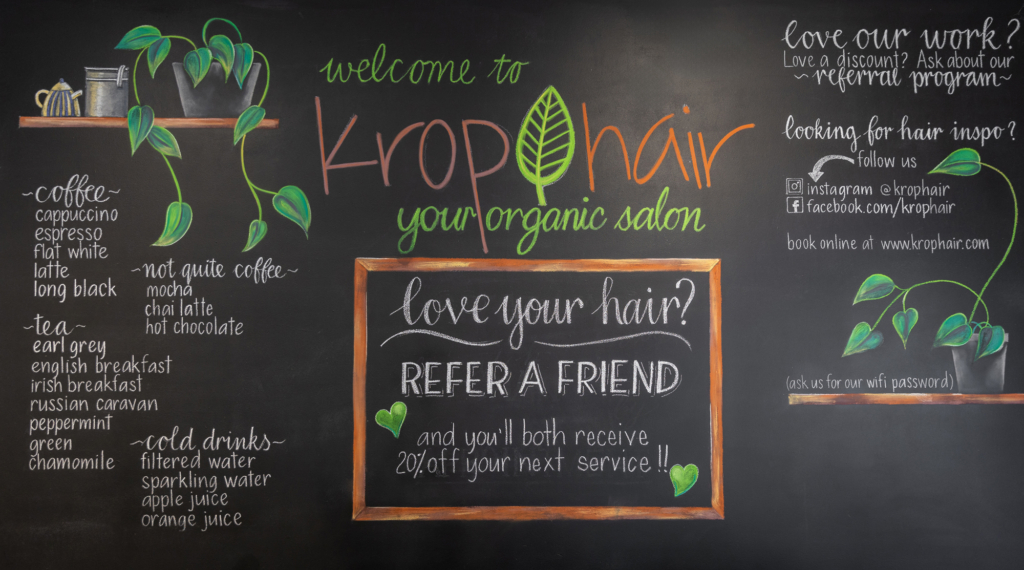 welcome to
krop hair
your organic salon
~coffee~
cappuccino
espresso
flat white
latte
long black
~not quite coffee~
mocha
chai latte
hot chocolate
~tea~
earl grey
english breakfast
irish breakfast
russian caravan
peppermint
green
chamomile
~cold drinks~
filtered water
sparkling water
apple juice
orange juice
love your hair?
REFER A FRIEND
and you'll both receive
20% off your next service!!
love our work?
Love a discount? Ask about our
~referral program~
looking for hair inspo?
follow us
instagram @krophair
facebook.com/krophair
book online at www.krophair.com
(ask us for our wifi password)